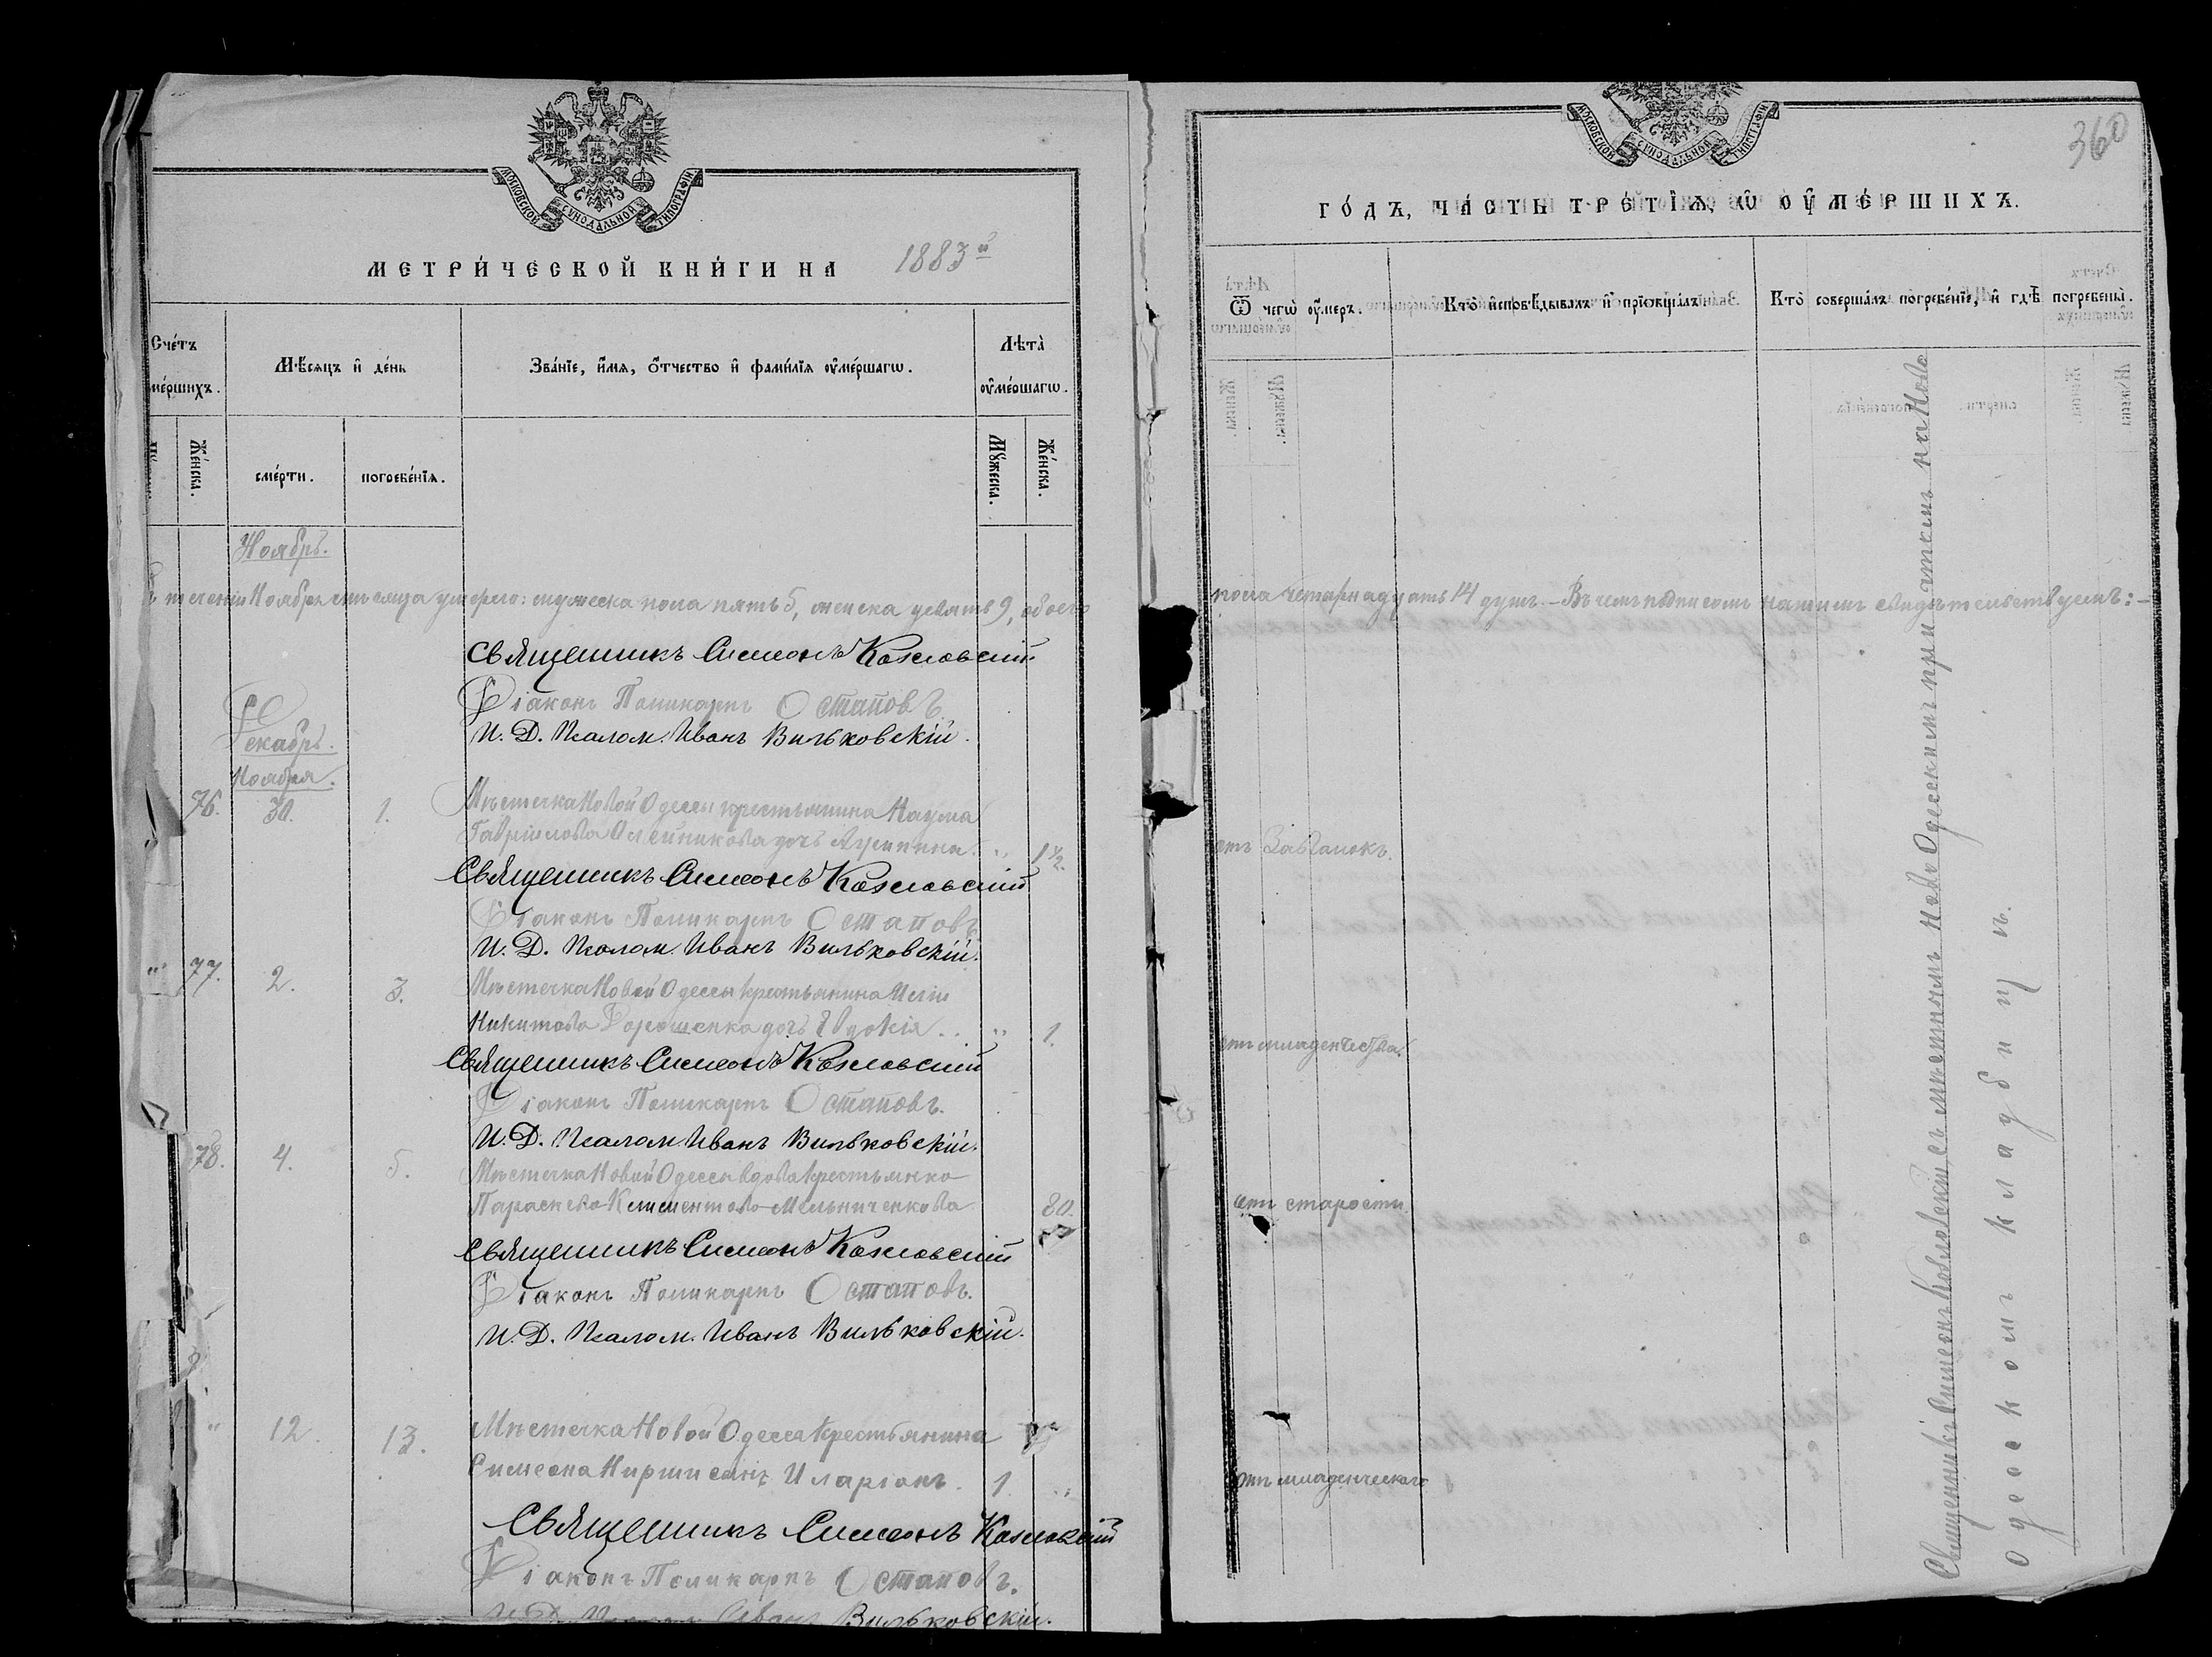 МОСКОВСКОЙ СѴНОДАЛЬНОЙ ТИПОГРАФІИ
МЕТРИ́ЧЕСКОЙ КНИ́ГИ НА 1883й
Сче́тъ
ме́ршихъ.
Мѣ́сяцъ и҆ де́нь
Зва́нїе, и҆́мя, ѻ҆́тчество и҆ фами́лїя ᲂу҆ме́ршагѡ.
Лѣта̀
ᲂу҆ме́ршагѡ.
Же́нска.
сме́рти.
погребе́нїѧ.
Мꙋ́жеска.
Же́нска.
Ноябрь.
теченіи Ноября мѣсяца умерло: мужеска пола пять 5, женска девять 9, обоего
Священникъ Симеонъ Козловскій
Діаконъ Поликарпъ Остаповъ
И. Д. Псалом. Иванъ Вильковскій.
Декабрь.
Ноября.
76. 30. 1. Мѣстечка Новой Одессы крестьянина Наума
Гавріилова Олейникова дочь Агрипина. „ 1½
Священникъ Симеонъ Козловскій
Діаконъ Поликарпъ Остаповъ
И. Д. Псалом. Иванъ Вильковскій.
„ 77. 2. 3. Мѣстечка Новой Одессы крестьянина Иліи
Никитова Дорошенка дочь Евдокія . . „ 1.
Священникъ Симеонъ Козловскій
Діаконъ Поликарпъ Остаповъ.
И. Д. Псалом. Иванъ Вильковскій.
78. 4. 5. Мѣстечка Новой Одессы вдова крестьянка
Параскева Климентова Мельниченкова 80.
Священникъ Симеонъ Козловскій
Діаконъ Поликарпъ Остаповъ.
И. Д. Псалом. Иванъ Вильковскій.
„ 12. 13. Мѣстечка Новой Одесса крестьянина
Симеона сынъ Иларіонъ. 1. „
Священникъ Симеонъ Козловскій
Діаконъ Поликарпъ Остаповъ.
И. Д. Псалом. Иванъ Вильковскій.
МОСКОВСКОЙ СѴНОДАЛЬНОЙ ТИПОГРАФІИ
360
ГО́ДЪ, ЧА́СТЬ ТРЕ́ТЇѦ, Ѡ҆ ОУ҆МЕ́РШИХЪ.
Ѿ чегѡ̀ ᲂу҆́меръ.
Кто̀ и҆сповѣ́дывалъ и҆ прїѡбща́лъ
Кто̀ соверша́лъ погребе́нїе, и҆ гдѣ̀ погребены̀.
пола четырнадцать 14 душъ. — Въ чемъ подписомъ нашимъ свидѣтельствуемъ: —
отъ Завалокъ.
отъ младенчества.
отъ старости
отъ младенческаго
Священникъ Симеонъ Козловскій съ мѣстнымъ Ново Одесскимъ причтомъ на Ново
Одесскомъ кладбищѣ.